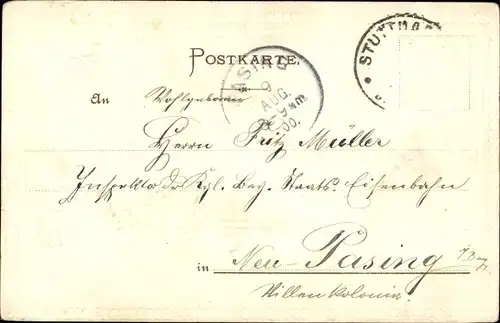 POSTKARTE.
STUTTGA
PASING
9
AUG.
8-9 Vm
00.
An Wohlgeboren
Herrn Fritz Müller
Inspektor d. Kgl. Bay. Staats. Eisenbahn
in Neu-Pasing
Villen Kolonie.